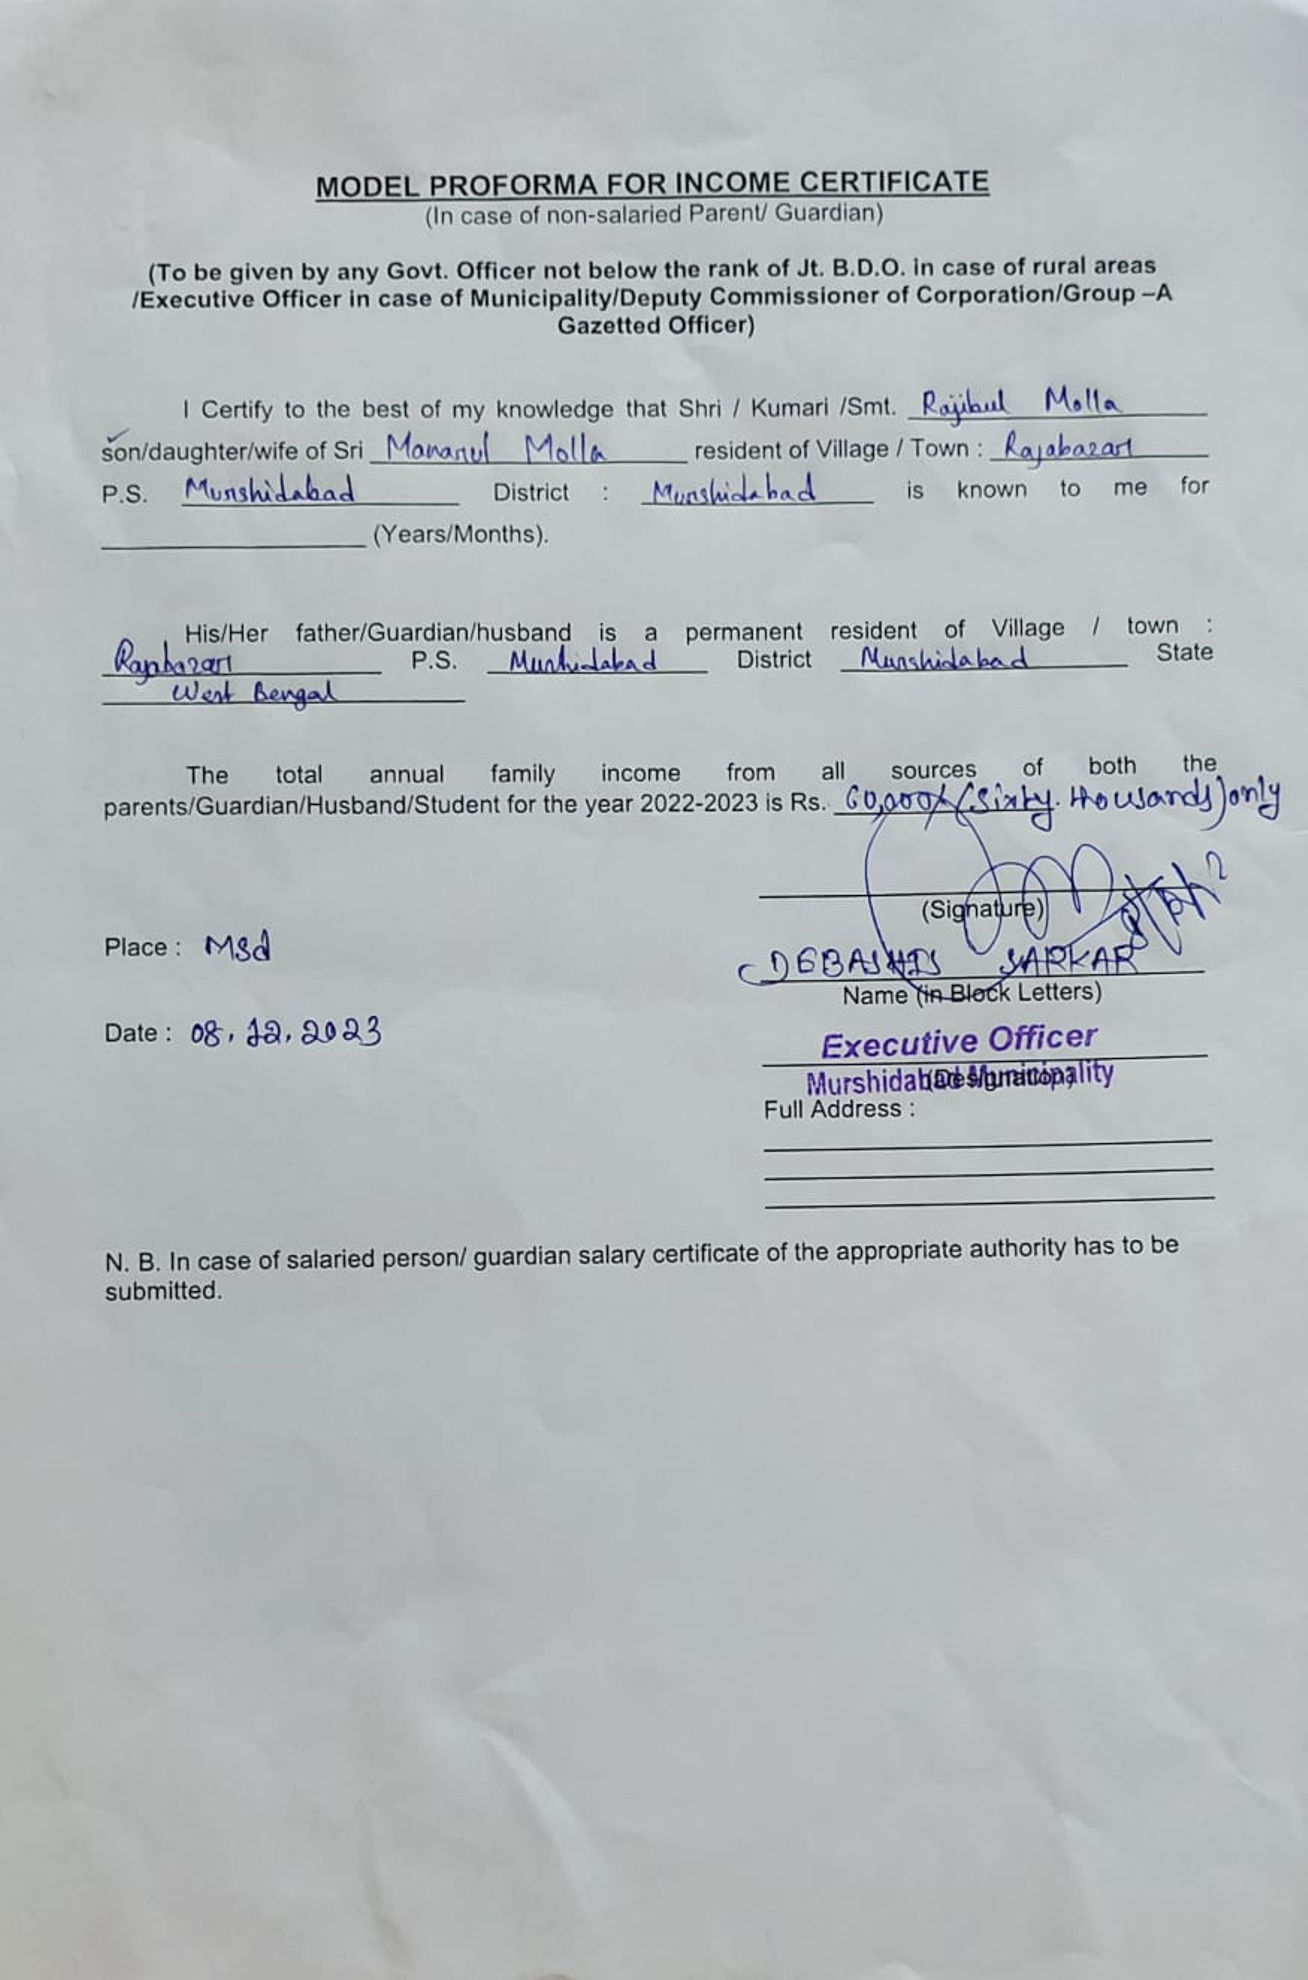 MODEL PROFORMA FOR INCOME CERTIFICATE
(In case of non-salaried Parent/ Guardian)
(To be given by any Govt. Officer not below the rank of Jt. B.D.O. in case of rural areas
/Executive Officer in case of Municipality/Deputy Commissioner of Corporation/Group –A
Gazetted Officer)
I Certify to the best of my knowledge that Shri / Kumari /Smt. Rajibul Molla
son/daughter/wife of Sri Mananul Molla resident of Village / Town : Rajabazar
P.S. Murshidabad District : Murshidabad is known to me for
(Years/Months).
His/Her father/Guardian/husband is a permanent resident of Village / town :
Rajabazar P.S. Murshidabad District Murshidabad State
West Bengal
The total annual family income from all sources of both the
parents/Guardian/Husband/Student for the year 2022-2023 is Rs. 60,000/- (Sixty thousands) only
(Signature)
Place : Msd
DEBASHIS SARKAR
Name (in Block Letters)
Date : 08.12.2023
Executive Officer
Murshidabad Municipality
(Designation)
Full Address :
N. B. In case of salaried person/ guardian salary certificate of the appropriate authority has to be
submitted.